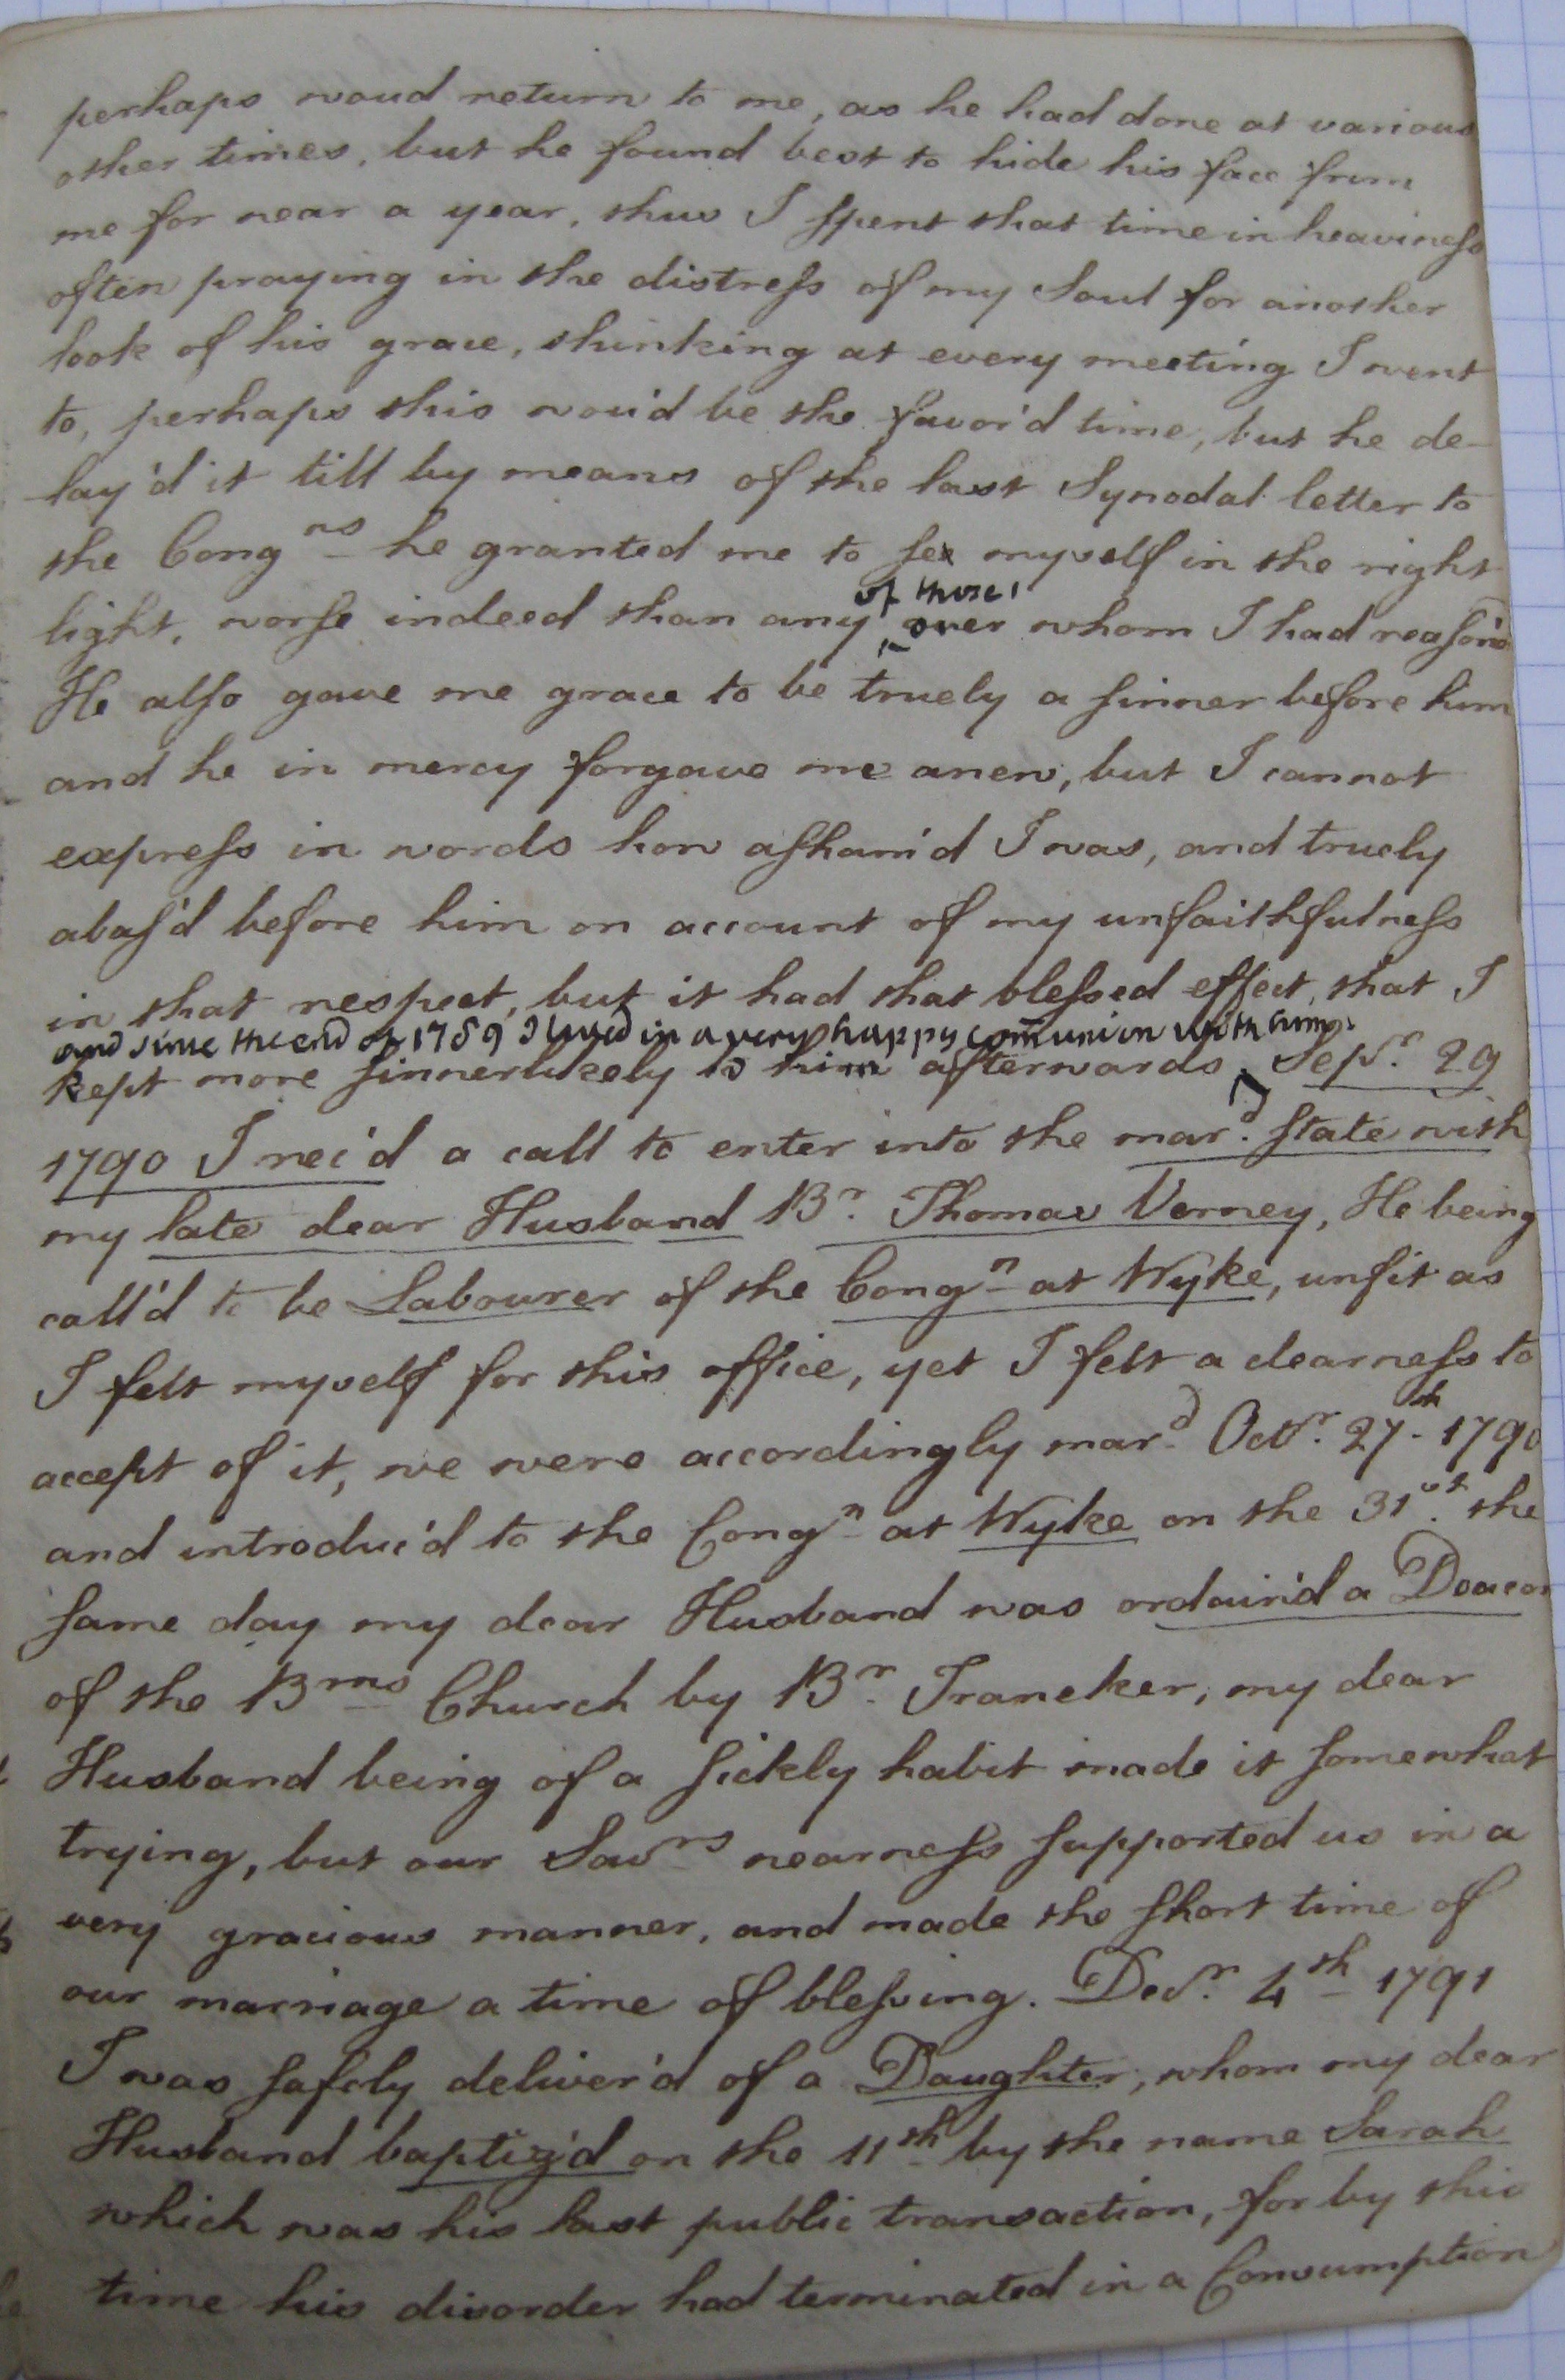 perhaps woud return to me, as he had done at various
other times, but he found best to hide his face from
me for near a year, thus I spent that time in heaviness
often praying in the distress of my Soul for another
look of his grace, thinking at every meeting I went
to, perhaps this wou'd be the favor'd time, but he de-
lay'd it till by means of the last Synodal letter to
the Congns he granted me to see myself in the right
of those
light, worse indeed than any over whom I had reason'd
He also gave me grace to be truely a sinner before him
and he in mercy forgave me anew, but I cannot
express in words how asham'd I was, and truely
abas'd before him on account of my unfaithfulness
in that respect, but it had that blessed effect, that I
and since the end of 1789 I lived in a very happy communion with him.
kept more sinnerlikely to him afterwards. Sepr. 29
1790 I rec'd a call to enter into the mard. state with
my late dear Husband Br. Thomas Verney, He being
call'd to be Labourer of the Congn at Wyke, unfit as
I felt myself for this office, yet I felt a clearness to
accept of it, we were accordingly mard. Octr. 27th 1790
and introduc'd to the Congn at Wyke on the 31st. the
same day my dear Husband was ordain'd a Deacon
of the Brns Church by Br. Traneker, my dear
Husband being of a sickly habit made it somewhat
trying, but our Savrs nearness supported us in a
very gracious manner, and made the short time of
our marriage a time of blessing. Decr. 4th 1791
I was safely deliver'd of a Daughter, whom my dear
Husband baptiz'd on the 11th by the name Sarah
which was his last public transaction, for by this
time his disorder had terminated in a Consumption